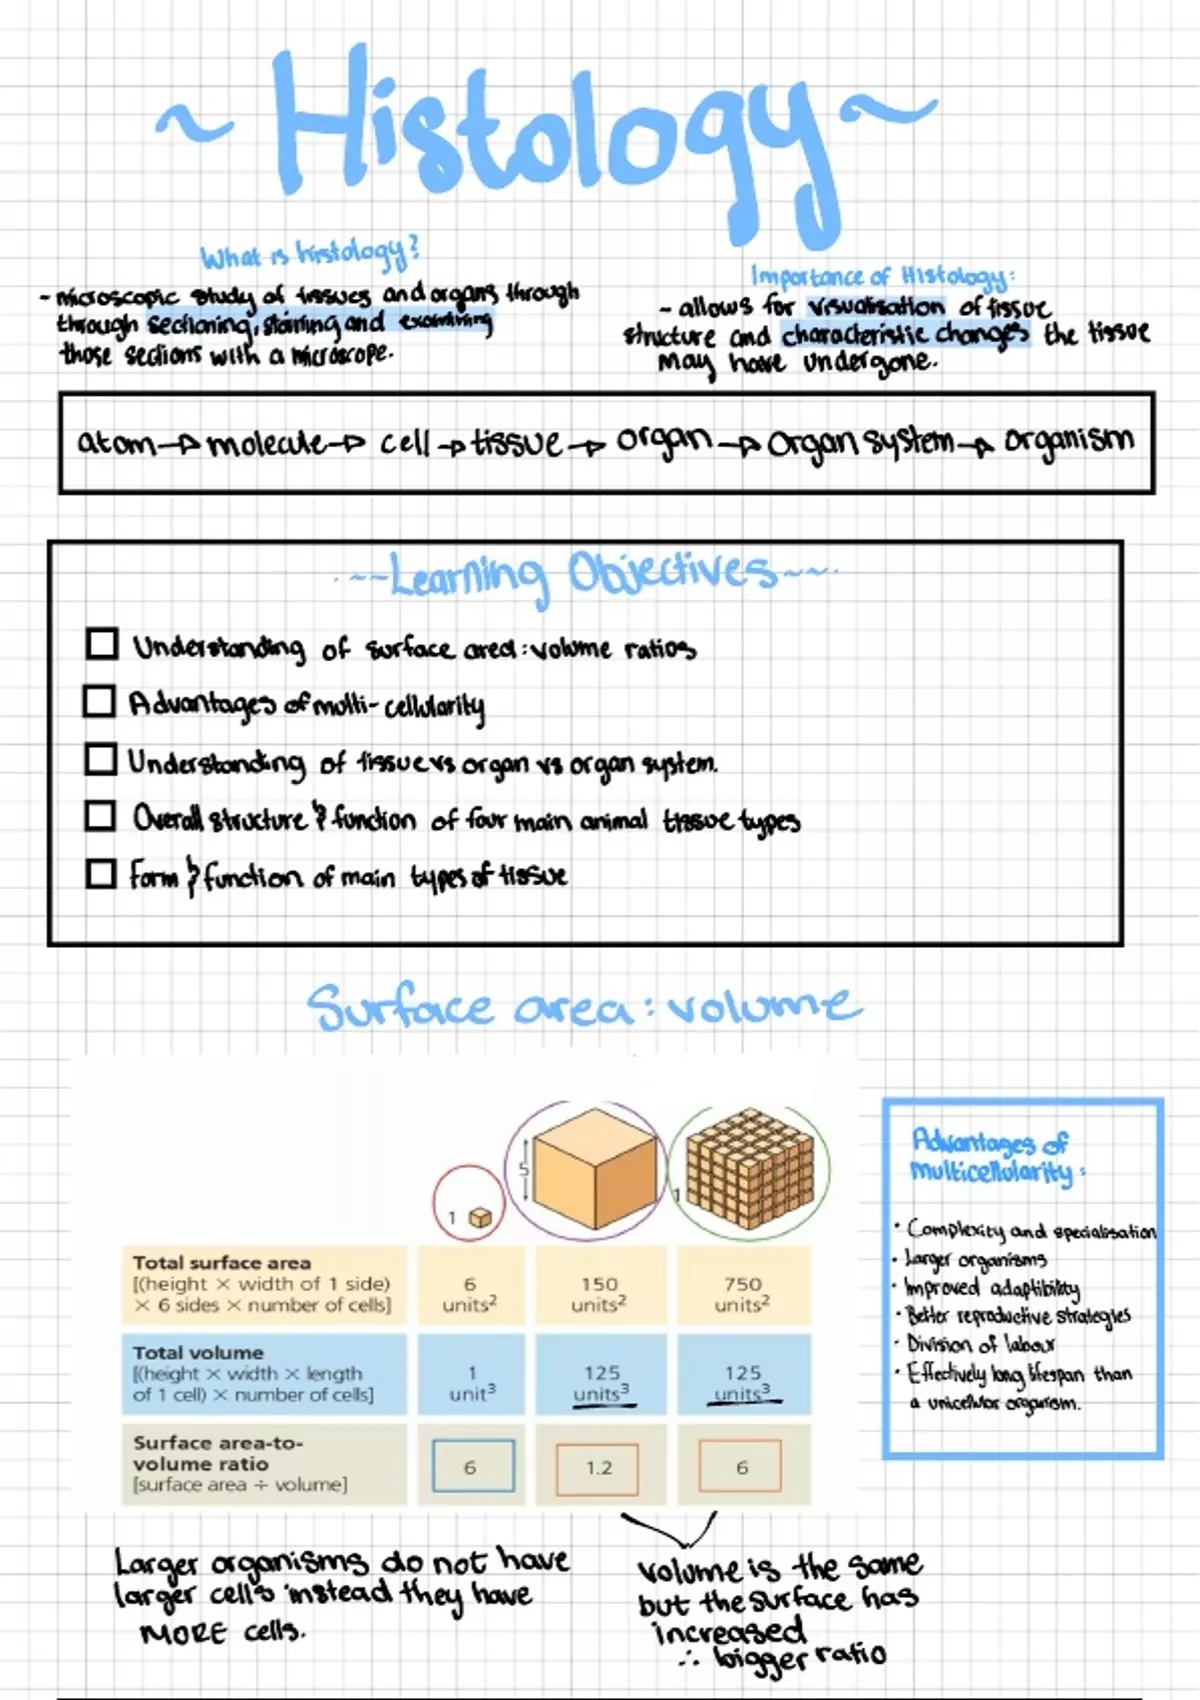 ~ Histology ~
What is histology?
- microscopic study of tissues and organs through
through sectioning, staining and examining
those sections with a microscope.
Importance of Histology:
- allows for visualisation of tissue
structure and characteristic changes the tissue
may have undergone.
atom → molecule → cell → tissue → organ → organ system → organism
·~~Learning Objectives~~·
Understanding of surface area:volume ratios
Advantages of multi-cellularity
Understanding of tissue vs organ vs organ system.
Overall structure & function of four main animal tissue types
Form & function of main types of tissue
Surface area:volume
1
5
1
Total surface area
[(height × width of 1 side)
× 6 sides × number of cells]
6
units²
150
units²
750
units²
Total volume
[(height × width × length
of 1 cell) × number of cells]
1
unit³
125
units³
125
units³
Surface area-to-
volume ratio
[surface area ÷ volume]
6
1.2
6
Advantages of
multicellularity:
· Complexity and specialisation
· Larger organisms
· Improved adaptibility
· Better reproductive strategies
· Division of labour
· Effectively long lifespan than
a unicellular organism.
Larger organisms do not have
larger cells instead they have
MORE cells.
volume is the same
but the surface has
increased
∴ bigger ratio